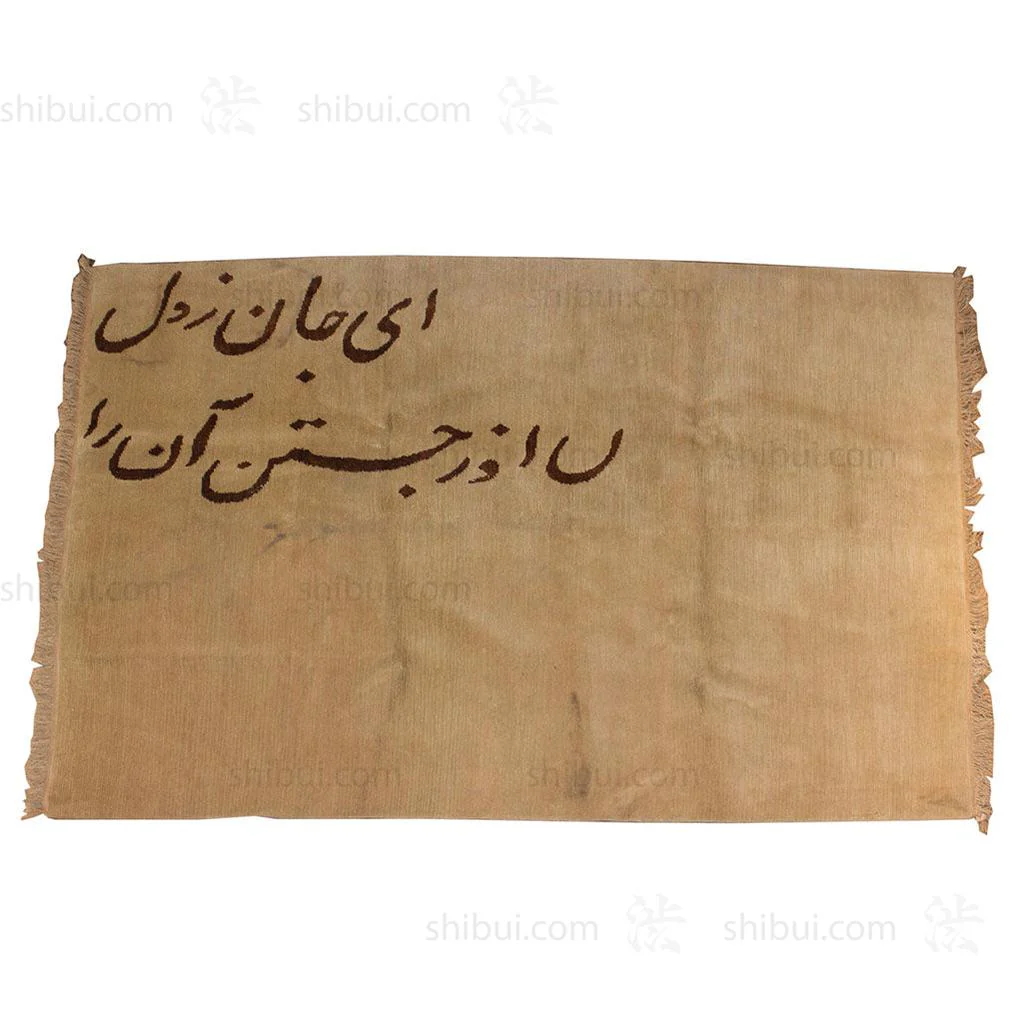 shibui.com shibui.com
ای جان زدل
shibui.com shibui.com
جستن آن را
shibui.com shibui.com
shibui.com shibui.com
shibui.com shibui.com
shibui.com shibui.com